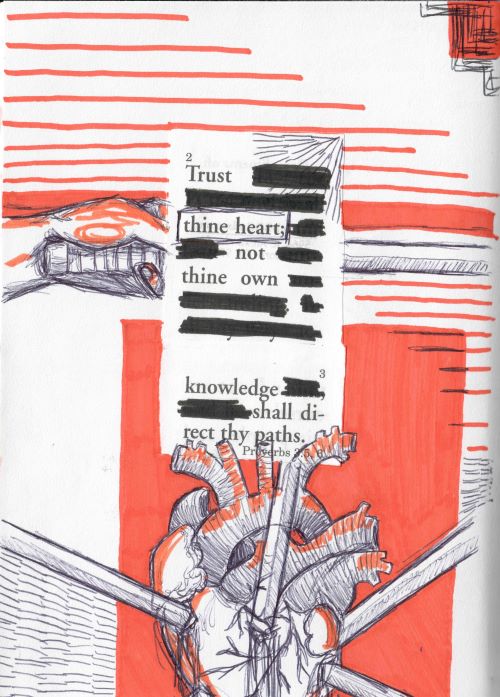 2
Trust
thine heart;
not
thine own
3
knowledge
shall di-
rect thy paths.
Proverbs 3:5, 6